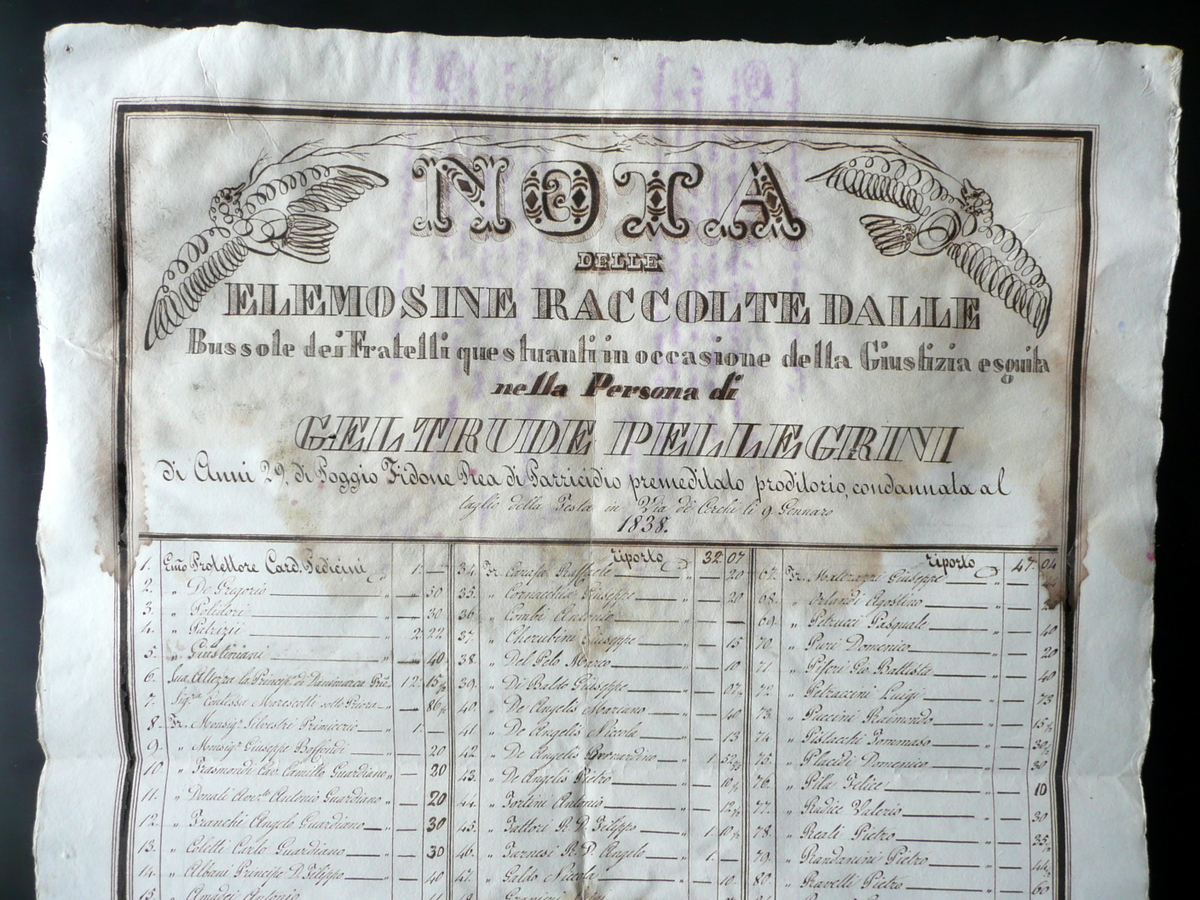 NOTA
DELLE
ELEMOSINE RACCOLTE DALLE
Bussole dei Fratelli questuanti in occasione della Giustizia esguita
nella Persona di
GELTRUDE PELLEGRINI
di Anni 29. di Poggio Fidone Rea di Parricidio premeditato proditorio, condannata al
taglio della Testa in Via de Cerchi li 9 Gennaro
1838.
1. Emo Protettore Card. Pedicini " 1. —
2. " De Gregorio " — 50
3. " Polidori " — 30
4. " Patrizii " 2. 22
5. " Giustiniani — 40
6. Sua Altezza la Principa di Danimarca 12. 15
7. Siga Contessa Marescotti sotto Priora — 86½
8. Fr. Monsigr Silvestri Primicerio " 1. —
9. " Monsigr Giuseppe Boffondi " — 20
10. " Trasmondi Cav. Camillo Guardiano " — 20
11. " Donati Antonio Guardiano " — 20
12. " Franchi Angelo Guardiano " — 30
13. " Coletti Carlo Guardiano " — 30
14. " Albani Principe D. Filippo " — 40
15. " Amadei Antonio
riporto 32 07
34. Fr. Raffaele " — 20
35. " Cornacchia Giuseppe " — 20
36. " Combi Antonio " —
37. " Cherubini Giuseppe " — 15
38. " Del Pelo Marco " — 10
39. " Di Baldo Giuseppe " — 07½
40. " De Angelis Mariano " — 40
41. " De Angelis Nicola " — 13
42. " De Angelis Bernardino " 1.
43. " De Angelis Pietro " — 10½
44. " Fortini Antonio " — 12½
45. " Fattori R. D. Filippo " 1. 10½
46. " Farnesi R. P. Angelo " 1. —
47. " Galdo Nicola " — 10
riporto 47. 04
67. Fr. Giuseppe " —
68. " Orlandi Agostino " —
69. " Petrucci Pasquale " — 40
70. " Puri Domenico " — 20
71. " Pifori Gio. Battista " — 40
72. " Petraccini Luigi " — 73
73. " Puccini Raimondo " — 15½
74. " Pistacchi Tommaso " — 30½
75. " Placidi Domenico " — 30
76. " Pila Felice " — 10
77. " Radice Valerio " — 30
78. " Reali Pietro " — 35
79. " Randanini Pietro " — 44½
80. " Ravelli Pietro " — 60